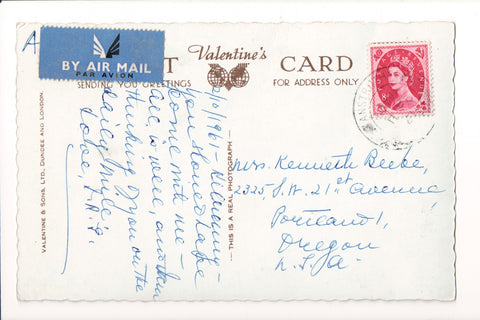 A
BY AIR MAIL
PAR AVION
Valentine's
T CARD
SENDING YOU GREETINGS
FOR ADDRESS ONLY
VALENTINE & SONS, LTD., DUNDEE AND LONDON.
THIS IS A REAL PHOTOGRAPH
1961 - Killarney -
you should have
come with me -
all is well, and am
thinking of you on the
Love,
Mrs. Kenneth Beebe,
2325, S.W. 21st Avenue
Portland 1,
Oregon
U.S.A.